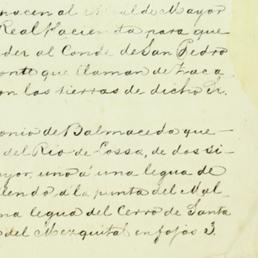 nacen al de Mayor
Real Hacienda para que
der al Conde de San Pedro
monte que llaman de Zaca
con las tierras de dicho in.
onio de Balmaceda que
del Rio de Lossa, de dos si-
ayor, uno á una legua de
liendo á la punta del Mal-
na legua del Cerro de Santa
o del Mezquital en fojas 3